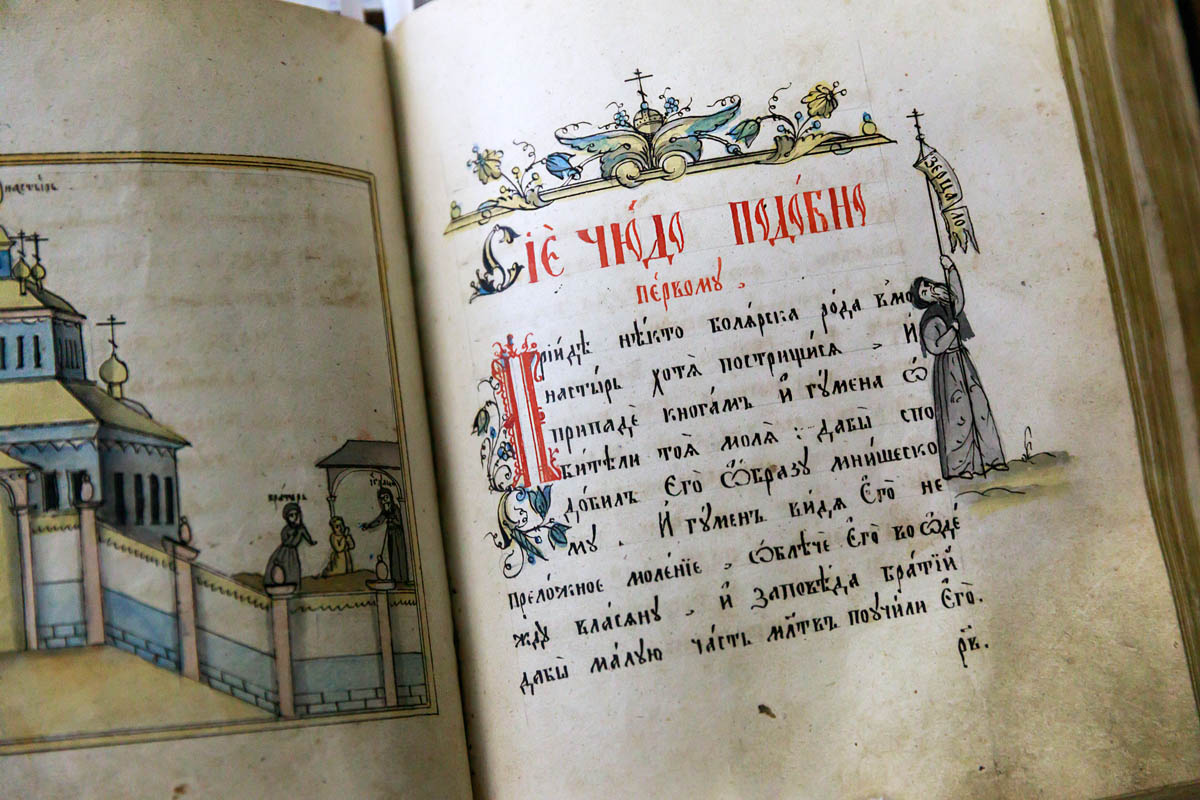 настырь
братъѧ
Зерца
ло
Сїѐ чю́до подо́бно
пе́рвому .
При́йде нѣ́кто болѧ́рска ро́да в̾мо
настырь хотѧ̀ постри́щисѧ . И҆
припадѐ к̾ногамъ и҆гꙋ́мена ѡ҆
би́тели тоѧ̀ молѧ̀ : дабы̀ спо
до́билъ є҆го̀ ѡ҆́бразꙋ мни́шеско
мꙋ . И҆гꙋ́менъ ви́дѧ є҆го̀ не
прело́жное моле́нїе , ѡ҆блечѐ є҆го̀ во ѡ҆де́
ждꙋ влас́ѧнꙋ , и҆ заповѣ́да бра́тїй
дабы̀ ма́лую часть мл҃твъ поꙋчи́ли є҆го̀.
рв҃.